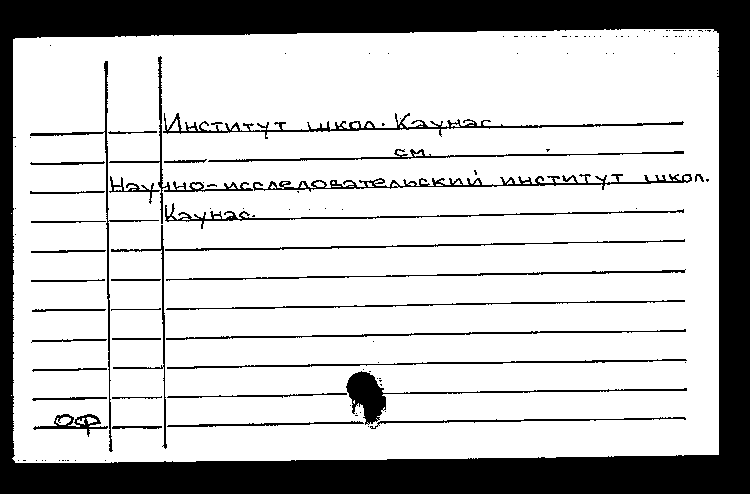 Институт школ. Каунас.
см.
Научно-исследовательский институт школ.
Каунас.
ОФ